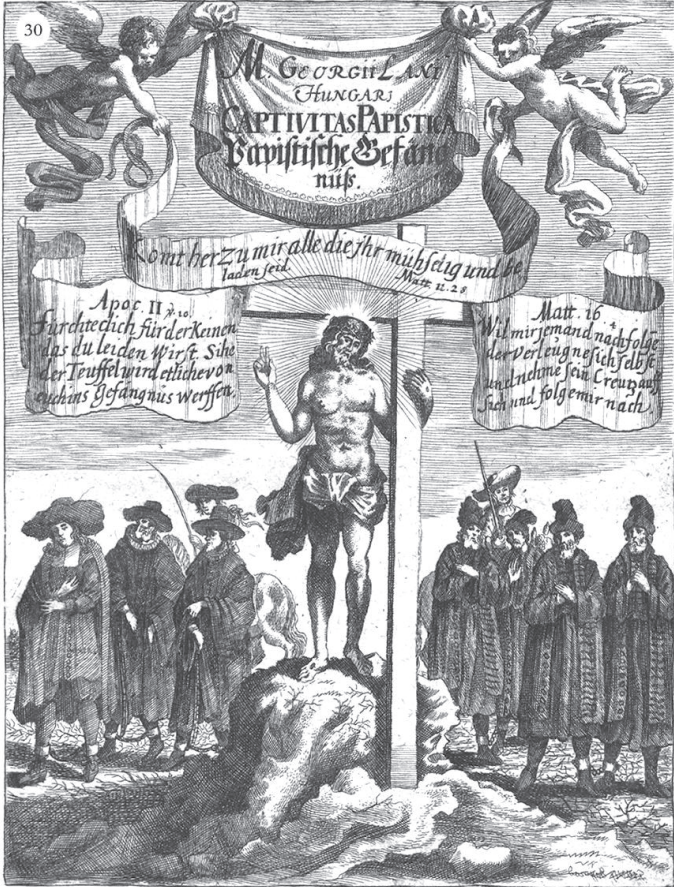 30
M. GEORGII LANI
HUNGARI
CAPTIVITAS PAPISTICA
Papistische Gefäng
nüß.
Komt her zu mir alle die jhr mühselig und be
laden seid. Matt. 11. 28
Apoc. II v. 10.
Furchte dich für der Keinen
das du leiden Wirst. Sihe
der Teuffel wird etliche von
euch ins Gefängnus werffen.
Matt. 16
Wil mir jemand nachfolge
der verleugne sich selbst
und nehme sein Creutz auff
sich und folge mir nach